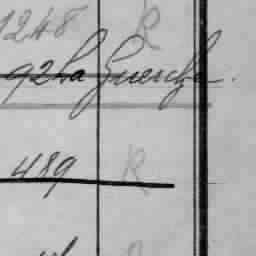 1248 R
92 La Guercha.
489 R